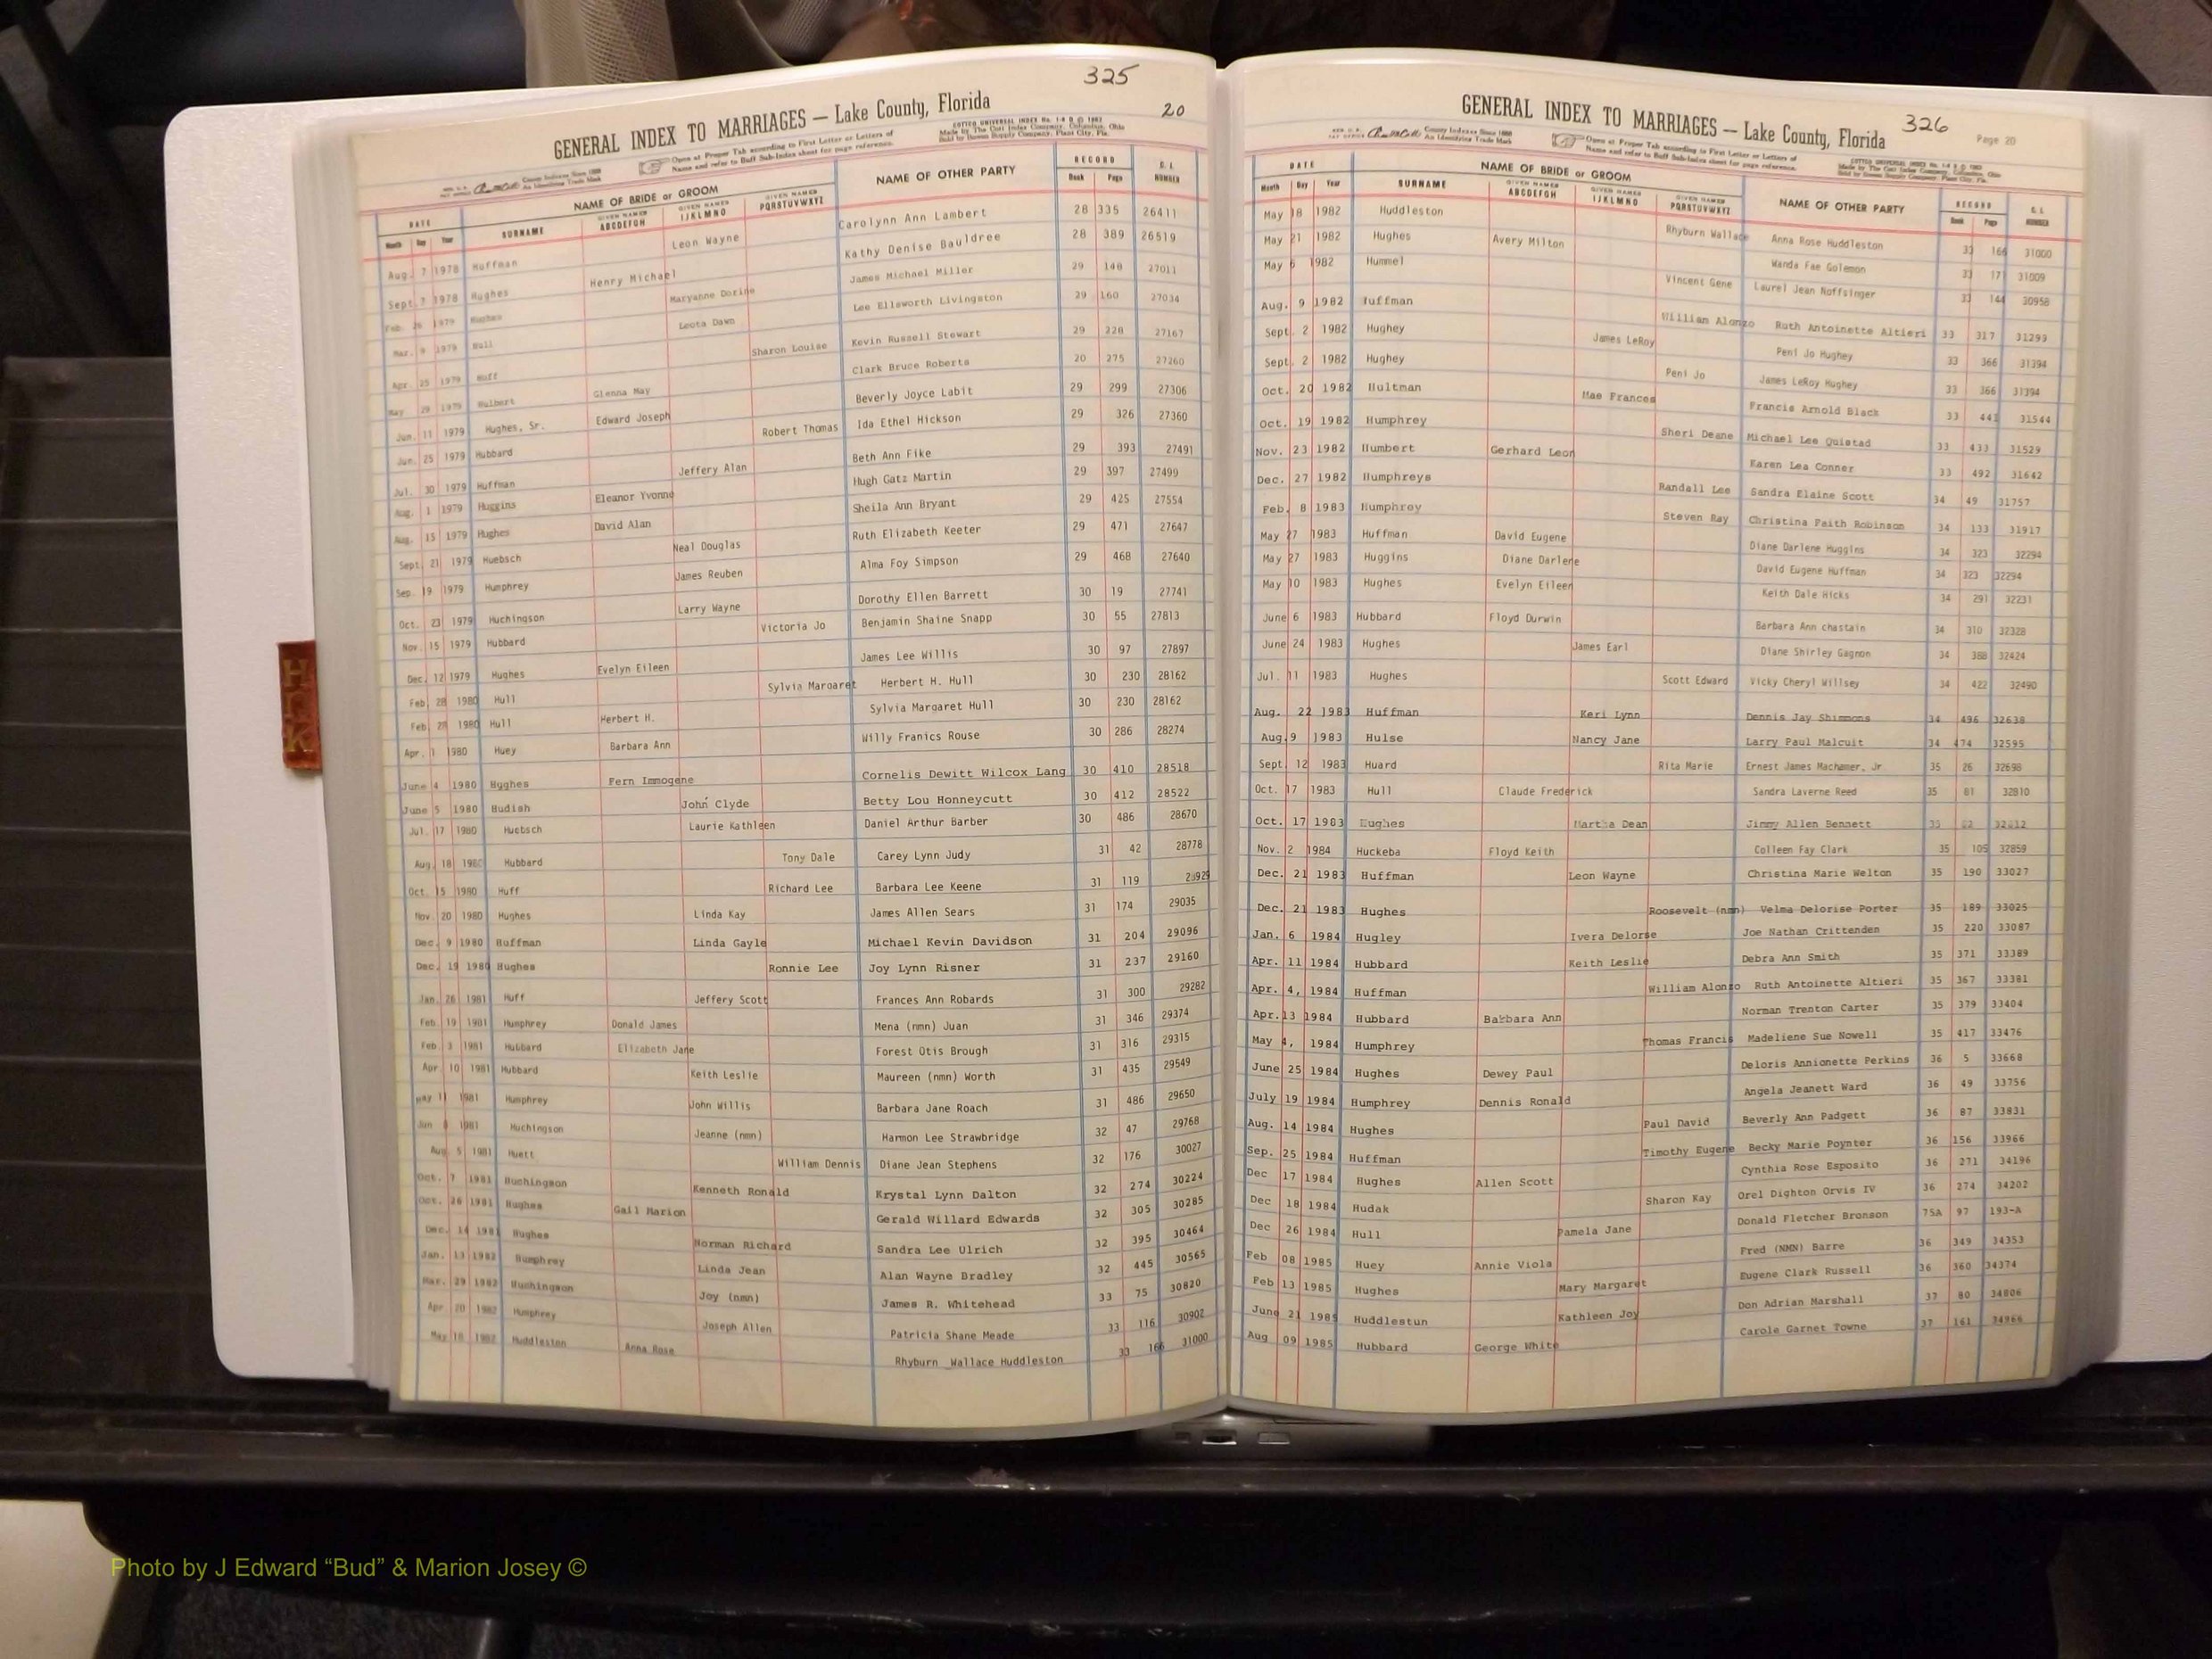 325
20
GENERAL INDEX TO MARRIAGES — Lake County, Florida
COTTCO UNIVERSAL INDEX No. 1-8 D © 1962
Made by The Cott Index Company, Columbus, Ohio
Sold by Bowen Supply Company, Plant City, Fla.
County Indexes Since 1888
An Identifying Trade Mark
Open at Proper Tab according to First Letter or Letters of
Name and refer to Buff Sub-Index sheet for page reference.
DATE NAME OF BRIDE or GROOM NAME OF OTHER PARTY RECORD
Month Day Year SURNAME GIVEN NAMES ABCDEFGH GIVEN NAMES IJKLMNO GIVEN NAMES PQRSTUVWXYZ Book Page NUMBER
Aug. 7 1978 Huffman Leon Wayne Carolynn Ann Lambert 28 335 26411
Sept. 7 1978 Hughes Henry Michael Kathy Denise Bauldree 28 389 26519
Feb. 26 1979 Hughes Maryanne Dorine James Michael Miller 29 148 27011
Mar. 9 1979 Hull Leota Dawn Lee Ellsworth Livingston 29 160 27034
Apr. 25 1979 Huff Sharon Louise Kevin Russell Stewart 29 228 27167
May 29 1979 Hulbert Glenna May Clark Bruce Roberts 20 275 27260
Jun. 11 1979 Hughes, Sr. Edward Joseph Beverly Joyce Labit 29 299 27306
Jun. 25 1979 Hubbard Robert Thomas Ida Ethel Hickson 29 326 27360
Jul. 30 1979 Huffman Jeffery Alan Beth Ann Fike 29 393 27491
Aug. 1 1979 Huggins Eleanor Yvonne Hugh Gatz Martin 29 397 27499
Aug. 15 1979 Hughes David Alan Sheila Ann Bryant 29 425 27554
Sept. 21 1979 Huebsch Neal Douglas Ruth Elizabeth Keeter 29 471 27647
Sep. 19 1979 Humphrey James Reuben Alma Foy Simpson 29 468 27640
Oct. 23 1979 Huchingson Larry Wayne Dorothy Ellen Barrett 30 19 27741
Nov. 15 1979 Hubbard Victoria Jo Benjamin Shaine Snapp 30 55 27813
Dec. 12 1979 Hughes Evelyn Eileen James Lee Willis 30 97 27897
Feb 28 1980 Hull Sylvia Margaret Herbert H. Hull 30 230 28162
Feb 28 1980 Hull Herbert H. Sylvia Margaret Hull 30 230 28162
Apr. 1 1980 Huey Barbara Ann Willy Franics Rouse 30 286 28274
June 4 1980 Hughes Fern Immogene Cornelis Dewitt Wilcox Lang 30 410 28518
June 5 1980 Hudish John Clyde Betty Lou Honneycutt 30 412 28522
Jul. 17 1980 Huebsch Laurie Kathleen Daniel Arthur Barber 30 486 28670
Aug 18 1980 Hubbard Tony Dale Carey Lynn Judy 31 42 28778
Oct. 15 1980 Huff Richard Lee Barbara Lee Keene 31 119
Nov. 20 1980 Hughes Linda Kay James Allen Sears 31 174 29035
Dec. 9 1980 Huffman Linda Gayle Michael Kevin Davidson 31 204 29096
Dec. 19 1980 Hughes Ronnie Lee Joy Lynn Risner 31 237 29160
Jan. 26 1981 Huff Jeffery Scott Frances Ann Robards 31 300 29282
Feb. 19 1981 Humphrey Donald James Mena (nmn) Juan 31 346 29374
Feb. 3 1981 Hubbard Elizabeth Jane Forest Otis Brough 31 316 29315
Apr. 10 1981 Hubbard Keith Leslie Maureen (nmn) Worth 31 435 29549
May 11 1981 Humphrey John Willis Barbara Jane Roach 31 486 29650
Jun 8 1981 Huchingson Jeanne (nmn) Harmon Lee Strawbridge 32 47 29768
Aug. 5 1981 Huett William Dennis Diane Jean Stephens 32 176 30027
Oct. 7 1981 Huchingson Kenneth Ronald Krystal Lynn Dalton 32 274 30224
Oct. 26 1981 Hughes Gail Marion Gerald Willard Edwards 32 305 30285
Dec. 14 1981 Hughes Norman Richard Sandra Lee Ulrich 32 395 30464
Jan. 13 1982 Humphrey Linda Jean Alan Wayne Bradley 32 445 30565
Mar. 29 1982 Huchingson Joy (nmn) James R. Whitehead 33 75 30820
Apr 20 1982 Humphrey Joseph Allen Patricia Shane Meade 33 116 30902
May 18 1982 Huddleston Anna Rose Rhyburn Wallace Huddleston 33 166 31000
H
K
GENERAL INDEX TO MARRIAGES — Lake County, Florida
326
Page 20
County Indexes Since 1888
An Identifying Trade Mark
Open at Proper Tab according to First Letter or Letters of
Name and refer to Buff Sub-Index sheet for page reference.
COTTCO UNIVERSAL INDEX No. 1-8 D © 1962
Made by The Cott Index Company, Columbus, Ohio
Sold by Bowen Supply Company, Plant City, Fla.
DATE NAME OF BRIDE or GROOM NAME OF OTHER PARTY RECORD
Month Day Year SURNAME GIVEN NAMES ABCDEFGH GIVEN NAMES IJKLMNO GIVEN NAMES PQRSTUVWXYZ Book Page NUMBER
May 18 1982 Huddleston Rhyburn Wallace Anna Rose Huddleston 33 166 31000
May 21 1982 Hughes Avery Milton Wanda Fae Golemon 33 171 31009
May 6 1982 Hummel Vincent Gene Laurel Jean Noffsinger 33 144 30958
Aug. 9 1982 Huffman William Alonzo Ruth Antoinette Altieri 33 317 31299
Sept. 2 1982 Hughey James LeRoy Peni Jo Hughey 33 366 31394
Sept. 2 1982 Hughey Peni Jo James LeRoy Hughey 33 366 31394
Oct. 20 1982 Hultman Mae Frances Francis Arnold Black 33 441 31544
Oct. 19 1982 Humphrey Sheri Deane Michael Lee Quistad 33 433 31529
Nov. 23 1982 Humbert Gerhard Leon Karen Lea Conner 33 492 31642
Dec. 27 1982 Humphreys Randall Lee Sandra Elaine Scott 34 49 31757
Feb. 8 1983 Humphrey Steven Ray Christina Faith Robinson 34 133 31917
May 27 1983 Huffman David Eugene Diane Darlene Huggins 34 323 32294
May 27 1983 Huggins Diane Darlene David Eugene Huffman 34 323 32294
May 10 1983 Hughes Evelyn Eileen Keith Dale Hicks 34 291 32231
June 6 1983 Hubbard Floyd Durwin Barbara Ann chastain 34 310 32328
June 24 1983 Hughes James Earl Diane Shirley Gagnon 34 388 32424
Jul. 11 1983 Hughes Scott Edward Vicky Cheryl Willsey 34 422 32490
Aug. 22 1983 Huffman Keri Lynn Dennis Jay Shimmons 34 496 32638
Aug. 9 1983 Hulse Nancy Jane Larry Paul Malcuit 34 474 32595
Sept. 12 1983 Huard Rita Marie Ernest James Machamer, Jr 35 26 32698
Oct. 17 1983 Hull Claude Frederick Sandra Laverne Reed 35 81 32810
Oct. 17 1983 Hughes Martha Dean Jimmy Allen Bennett 35
Nov. 2 1984 Huckeba Floyd Keith Colleen Fay Clark 35 105 32859
Dec. 21 1983 Huffman Leon Wayne Christina Marie Welton 35 190 33027
Dec. 21 1983 Hughes Roosevelt (nmn) Velma Delorise Porter 35 189 33025
Jan. 6 1984 Hugley Ivera Delorse Joe Nathan Crittenden 35 220 33087
Apr. 11 1984 Hubbard Keith Leslie Debra Ann Smith 35 371 33389
Apr. 4, 1984 Huffman William Alonzo Ruth Antoinette Altieri 35 367 33381
Apr. 13 1984 Hubbard Barbara Ann Norman Trenton Carter 35 379 33404
May 4, 1984 Humphrey Thomas Francis Madeliene Sue Nowell 35 417 33476
June 25 1984 Hughes Dewey Paul Deloris Annionette Perkins 36 5 33668
July 19 1984 Humphrey Dennis Ronald Angela Jeanett Ward 36 49 33756
Aug. 14 1984 Hughes Paul David Beverly Ann Padgett 36 87 33831
Sep. 25 1984 Huffman Timothy Eugene Becky Marie Poynter 36 156 33966
Dec 17 1984 Hughes Allen Scott Cynthia Rose Esposito 36 271 34196
Dec 18 1984 Hudak Sharon Kay Orel Dighton Orvis IV 36 274 34202
Dec 26 1984 Hull Pamela Jane Donald Fletcher Bronson 75A 97 193-A
Feb 08 1985 Huey Annie Viola Fred (NMN) Barre 36 349 34353
Feb 13 1985 Hughes Mary Margaret Eugene Clark Russell 36 360 34374
June 21 1985 Huddlestun Kathleen Joy Don Adrian Marshall 37 80 34806
Aug 09 1985 Hubbard George White Carole Garnet Towne 37 161 34966
Photo by J Edward “Bud” & Marion Josey ©